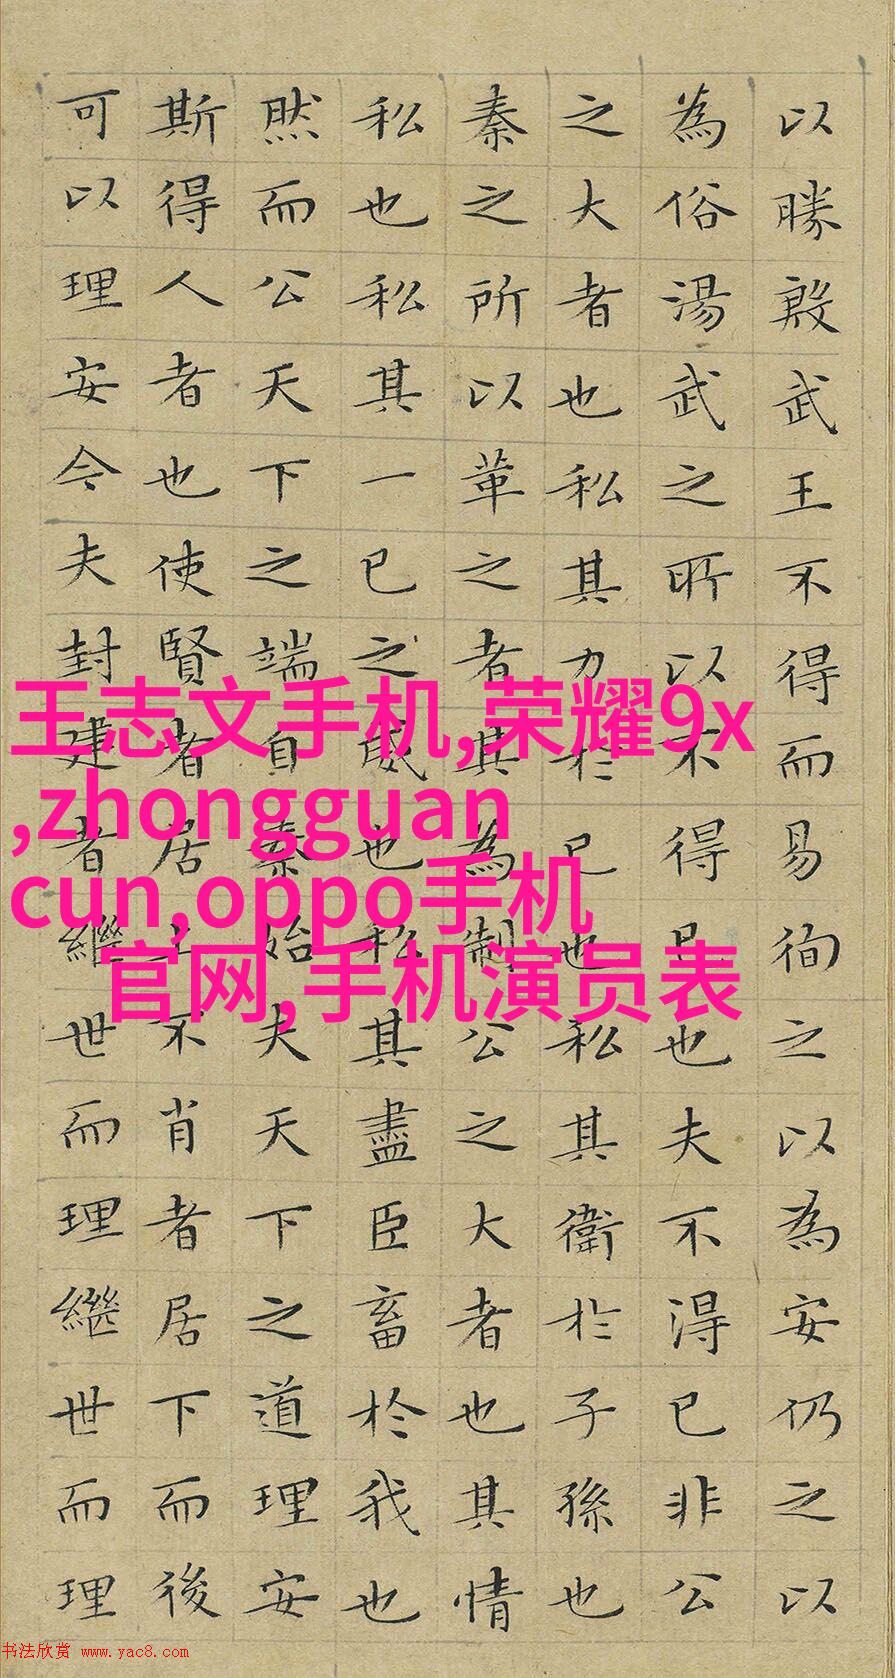 以勝殷武王不得而易徇之以為安仍之以
為俗湯武之所以不得已也夫不得已非公
之大者也私其力於己也私其衛於子孫也
秦之所以革之者其為制公之大者也其情
私也私其一己之威也私其盡臣畜於我也
然而公天下之端自秦始夫天下之道理安
斯得人者也使賢者居上不肖者居下而後
可以理安今夫封建者繼世而理繼世而理
王志文手机,荣耀9x
,zhongguan
cun,oppo手机
官网,手机演员表
书法欣赏 www.yac8.com